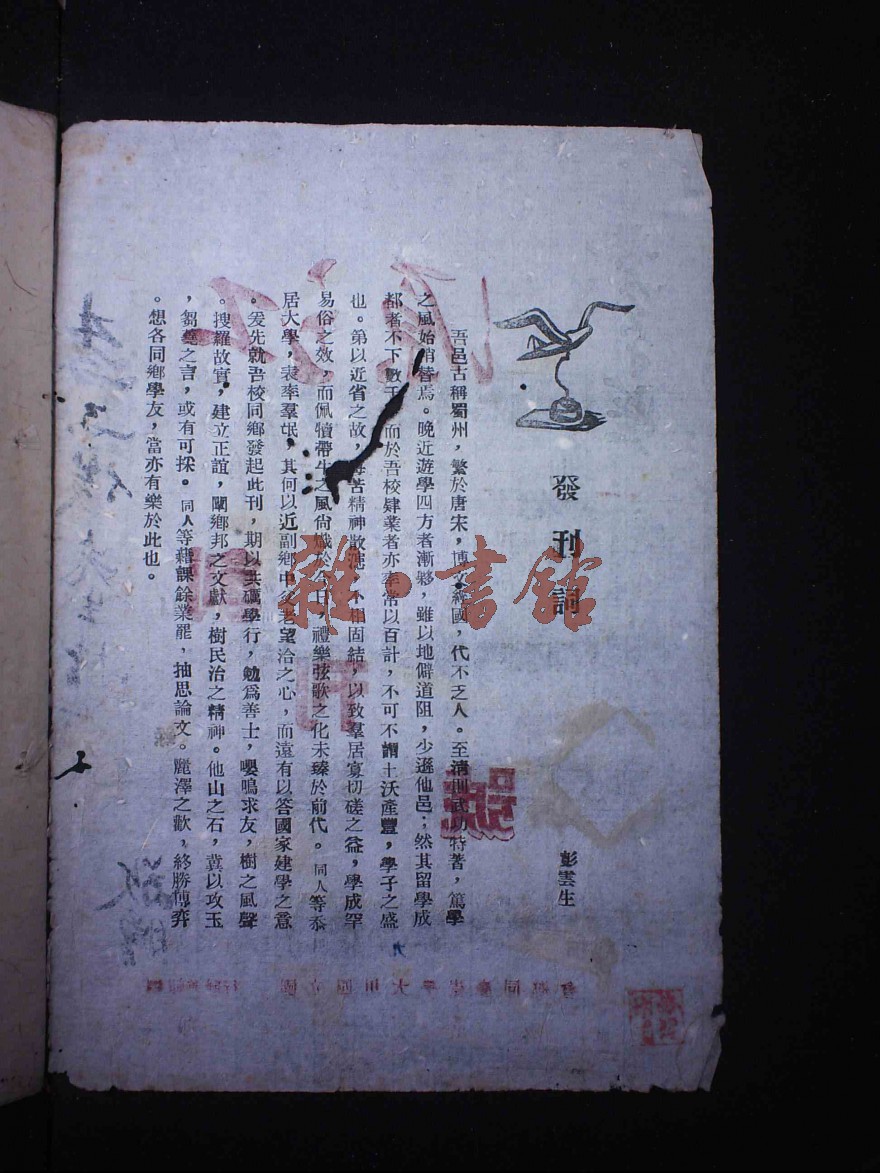 發刊詞
彭雲生
吾邑古稱蜀州，繁於唐宋，博文經國，代不乏人。至清則武功特著，篤學
之風始稍替焉。晚近遊學四方者漸夥，雖以地僻道阻，少遜他邑；然其留學成
都者不下數千，而於吾校肄業者亦率常以百計，不可不謂土沃產豐，學子之盛
也。第以近省之故，每苦精神散漫，不相固結，以致羣居寡切磋之益，學成罕
易俗之效，而佩犢帶牛之風尙熾於今日，禮樂弦歌之化未臻於前代。同人等忝
居大學，表率羣氓，其何以近副鄉中父老望洽之心，而遠有以答國家建學之意
。爰先就吾校同鄉發起此刊，期以共礪學行，勉爲善士，嚶鳴求友，樹之風聲
。搜羅故實，建立正誼，闡鄉邦之文獻，樹民治之精神。他山之石，冀以攻玉
，芻蕘之言，或有可採。同人等藉課餘業罷，抽思論文。麗澤之歡，終勝博弈
。想各同鄉學友，當亦有樂於此也。
雜·書館